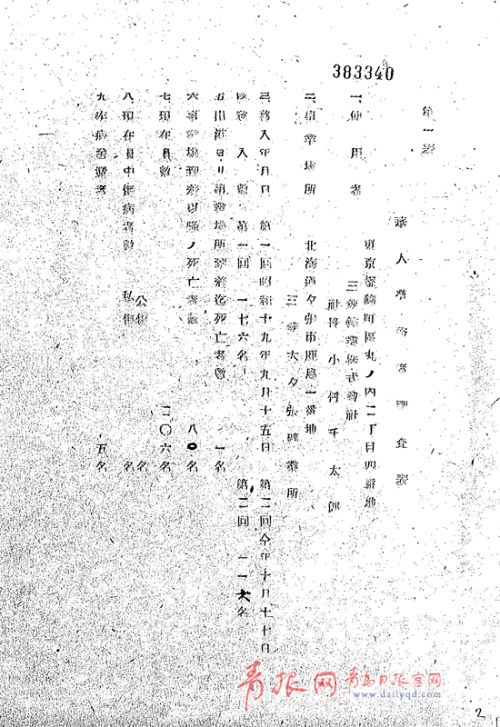 383340
華人勞務者調査表
東京都麹町區丸ノ内二丁目四番地
一、使用者 三菱鑛業株式會社
社長 小村千太郎
二、事業場所 北海道夕張市鹿島一番地
三菱大夕張鑛業所
三、移入年月日 第一回昭和十九年九月十五日 第二回仝年十月十七日
四、移入數 第一回 一七六名 第二回 一一六名
五、出港ヨリ事業場所到着迄死亡者數 一名
六、事業場到着以後ノ死亡者數 八〇名
七、現在員數 二〇六名
八、現在員中傷病者數 公傷 名
私傷 名
九、疾病 者 五名
青报网 青岛日报官网
www.dailyqd.com
2